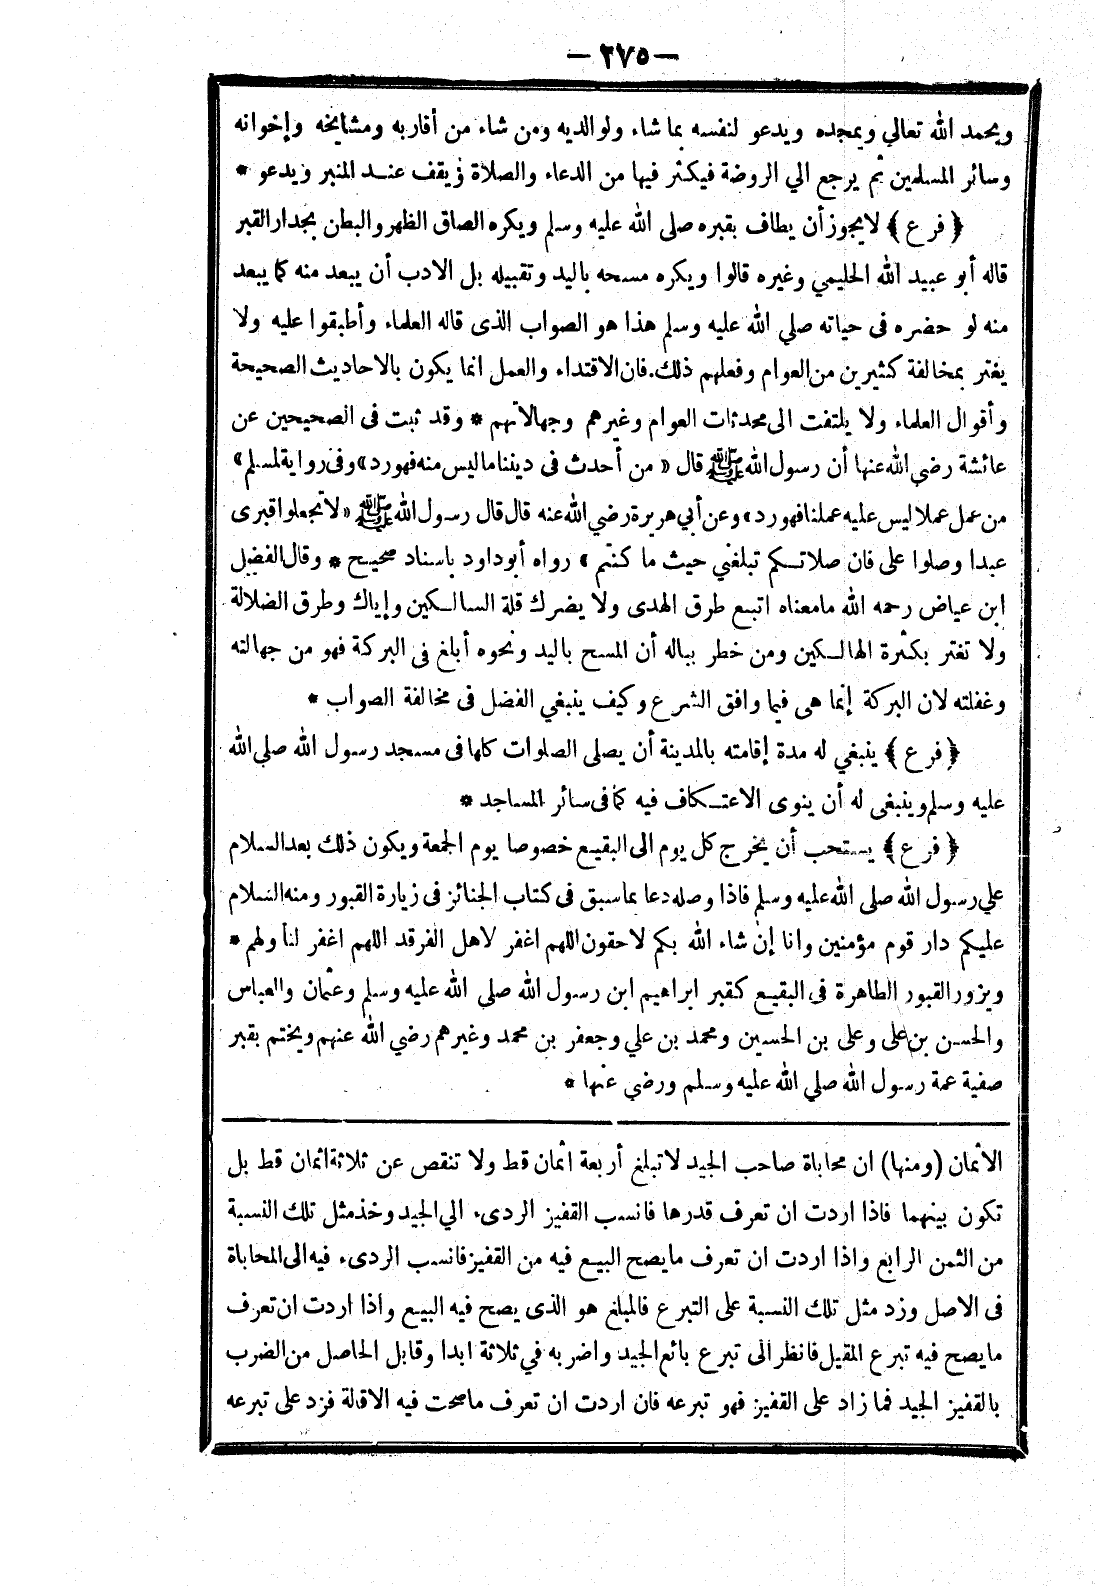 — ٢٧٥ —
ويحمد الله تعالي ويمجده ويدعو لنفسه بما شاء ولوالديه ومن شاء من أقاربه ومشايخه وإخوانه
وسائر المسلمين ثم يرجع الي الروضة فيكثر فيها من الدعاء والصلاة ويقف عند المنبر ويدعو *
﴿ فرع ﴾ لايجوز أن يطاف بقبره صلى الله عليه وسلم ويكره الصاق الظهر والبطن بجدار القبر
قاله أبو عبيد الله الحليمي وغيره قالوا ويكره مسحه باليد وتقبيله بل الادب أن يبعد منه كما يبعد
منه لو حضره فى حياته صلي الله عليه وسلم هذا هو الصواب الذى قاله العلماء وأطبقوا عليه ولا
يغتر بمخالفة كثيرين من العوام وفعلهم ذلك. فان الاقتداء والعمل انما يكون بالاحاديث الصحيحة
وأقوال العلماء ولا يلتفت الى محدثات العوام وغيرهم وجهالاتهم * وقد ثبت فى الصحيحين عن
عائشة رضي الله عنها أن رسول الله ﷺ قال « من أحدث فى ديننا ماليس منه فهورد» وفى رواية لمسلم»
من عمل عملا ليس عليه عملنا فهورد» وعن أبي هريرة رضي الله عنه قال قال رسول الله ﷺ «لا تجعلوا قبرى
عيدا وصلوا على فان صلاتكم تبلغني حيث ما كنتم » رواه أبو داود باسناد صحيح * وقال الفضيل
ابن عياض رحمه الله مامعناه اتبع طرق الهدى ولا يضرك قلة السالكين وإياك وطرق الضلالة
ولا تغتر بكثرة الهالكين ومن خطر بباله أن المسح باليد ونحوه أبلغ فى البركة فهو من جهالته
وغفلته لان البركة إنما هى فيما وافق الشرع وكيف ينبغي الفضل فى مخالفة الصواب *
﴿ فرع ﴾ ينبغي له مدة إقامته بالمدينة أن يصلى الصلوات كلها فى مسجد رسول الله صلى الله
عليه وسلم وينبغى له أن ينوى الاعتكاف فيه كما فى سائر المساجد *
﴿ فرع ﴾ يستحب أن يخرج كل يوم الى البقيع خصوصا يوم الجمعة ويكون ذلك بعد السلام
علي رسول الله صلى الله عليه وسلم فاذا وصله دعا بما سبق فى كتاب الجنائز فى زيارة القبور ومنه السلام
عليكم دار قوم مؤمنين وانا إن شاء الله بكم لاحقون اللهم اغفر لاهل الغرقد اللهم اغفر لنا ولهم *
ويزور القبور الطاهرة فى البقيع كقبر ابراهيم ابن رسول الله صلى الله عليه وسلم وعثمان والعباس
والحسن بن على وعلى بن الحسين ومحمد بن علي وجعفر بن محمد وغيرهم رضي الله عنهم ويختم بقبر
صفية عمة رسول الله صلي الله عليه وسلم ورضي عنها *
الأثمان (ومنها) ان محاباة صاحب الجيد لا تبلغ أربعة أثمان قط ولا تنقص عن ثلاثة اثمان قط بل
تكون بينهما فاذا اردت ان تعرف قدرها فانسب القفيز الردىء الي الجيد وخذ مثل تلك النسبة
من الثمن الرابع واذا اردت ان تعرف ما يصح البيع فيه من القفيز فانسب الردىء فيه الى المحاباة
فى الاصل وزد مثل تلك النسبة على التبرع فالمبلغ هو الذى يصح فيه البيع واذا اردت ان تعرف
ما يصح فيه تبرع المقيل فانظر الى تبرع بائع الجيد واضربه في ثلاثة ابدا وقابل الحاصل من الضرب
بالقفيز الجيد فما زاد على القفيز فهو تبرعه فان اردت ان تعرف ما صحت فيه الاقالة فزد على تبرعه